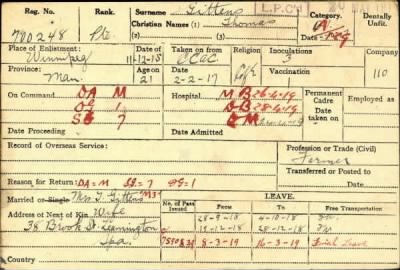 Reg. No.
Rank.
Surname } Gittens
Christian Names } (1) Thomas
(2) (3)
L.P.CH
Category.
A
Date
Dentally
Unfit.
700248 Pte
Place of Enlistment:
Winnipeg
Date of
11-12-15
Taken on from
CCAC
Religion
C of E
Inoculations
3
Company
110
Province:
Man.
Age on
21
2-2-17
Vaccination
On Command
DA M
OS 1
SS 7
Hospital
M B 26-4-19
D B 28-4-19
Permanent
Cadre
Date
taken on
Employed as
Date Proceeding
Date Admitted
Record of Overseas Service:
Profession or Trade (Civil)
Farmer
Transferred or Posted to
Reason for Return: DA=M SS=7 OS=1
Date
Married or Single Mrs T. Gittens M31
Address of Next of Kin Wife
38 Brook St. Leamington
Spa.
Country
LEAVE.
No. of Pass
Issued
From
To
Free Transportation
28-9-18 4-10-18
19-12-18 28-12-18
8-3-19 16-3-19 Finish Leave